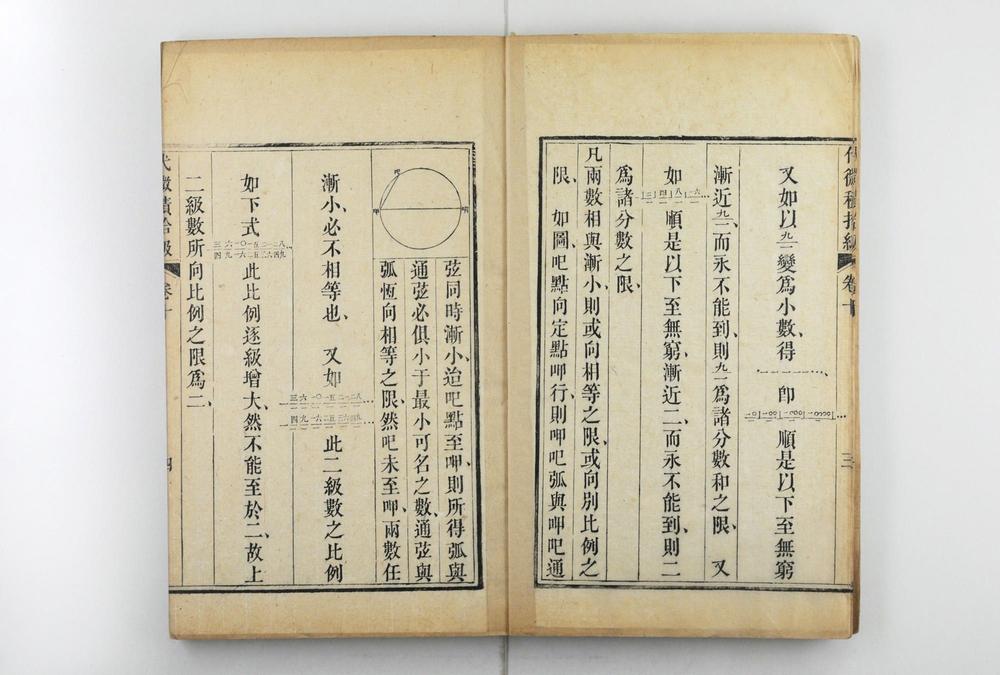 代微積拾級 卷十 三
又如以九一變爲小數、得．一一一一一一…、卽 順是以下至無窮
漸近九一、而永不能到、則九一爲諸分數和之限、 又
如 順是以下至無窮、漸近二、而永不能到、則二
爲諸分數之限、
凡兩數相與漸小、則或向相等之限、或向別比例之
限、 如圖、吧點向定點呷行、則呷吧弧與呷吧通
弦同時漸小、迨吧點至呷、則所得弧與
通弦必俱小于最小可名之數、通弦與
弧恆向相等之限、然吧未至呷、兩數任
漸小、必不相等也、 又如 此二級數之比例
如下式、 此比例逐級增大、然不能至於二、故上
二級數所向比例之限爲二、
代微積拾級 卷十 四